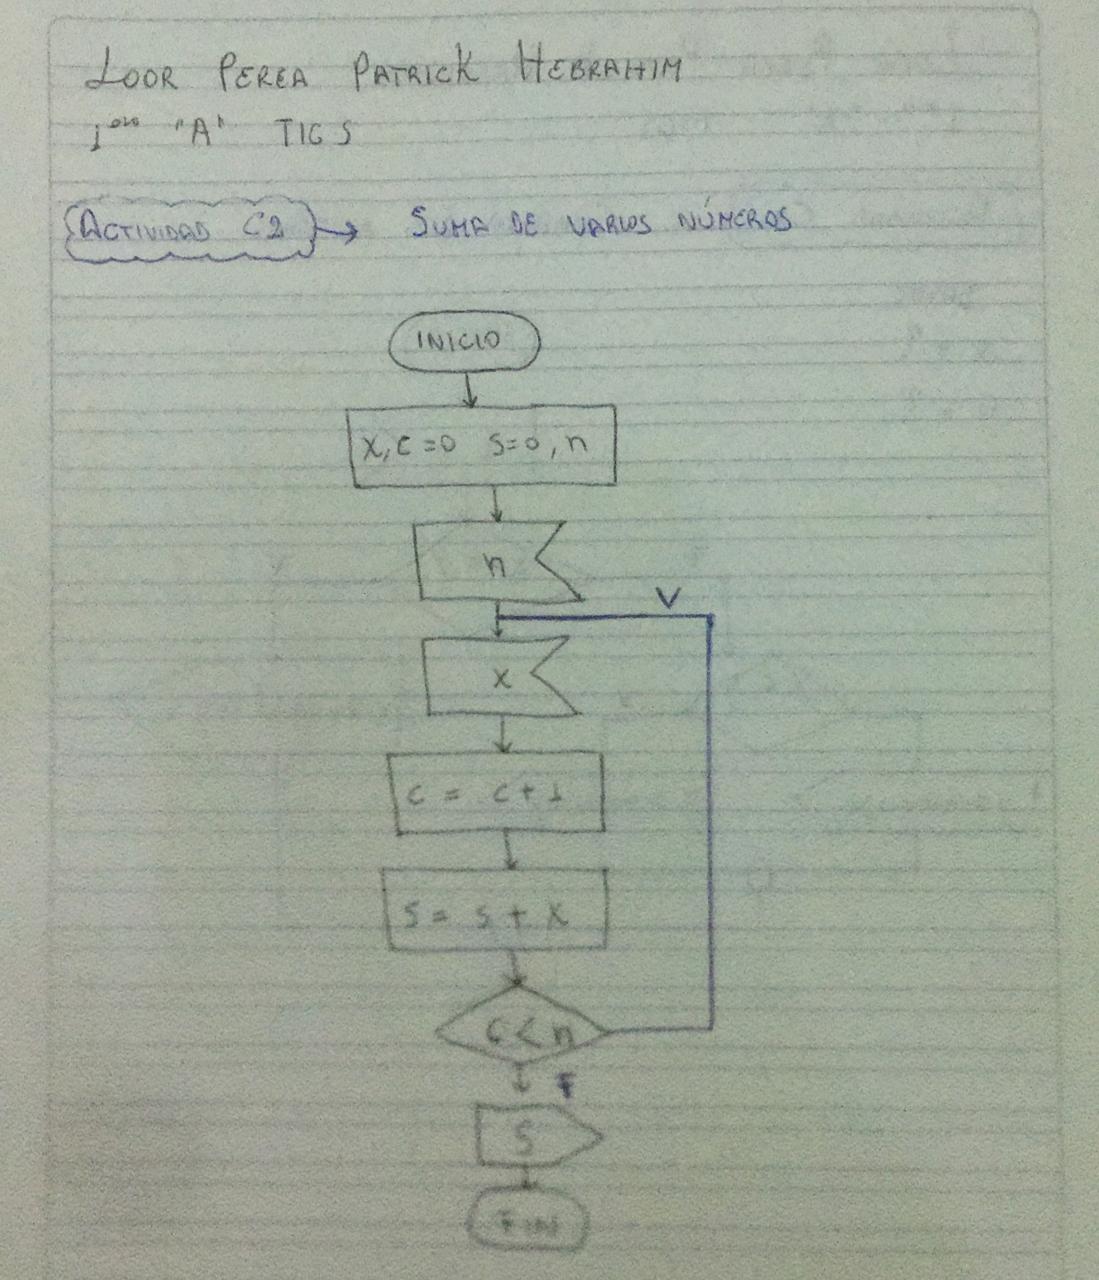 LOOR PEREA PATRICK HEBRAHIM
1ero "A" TICS
ACTIVIDAD C2 → SUMA DE VARIOS NÚMEROS
INICIO
X, C=0 S=0, n
n
V
X
C = C + 1
S = S + X
C < n
F
S
FIN